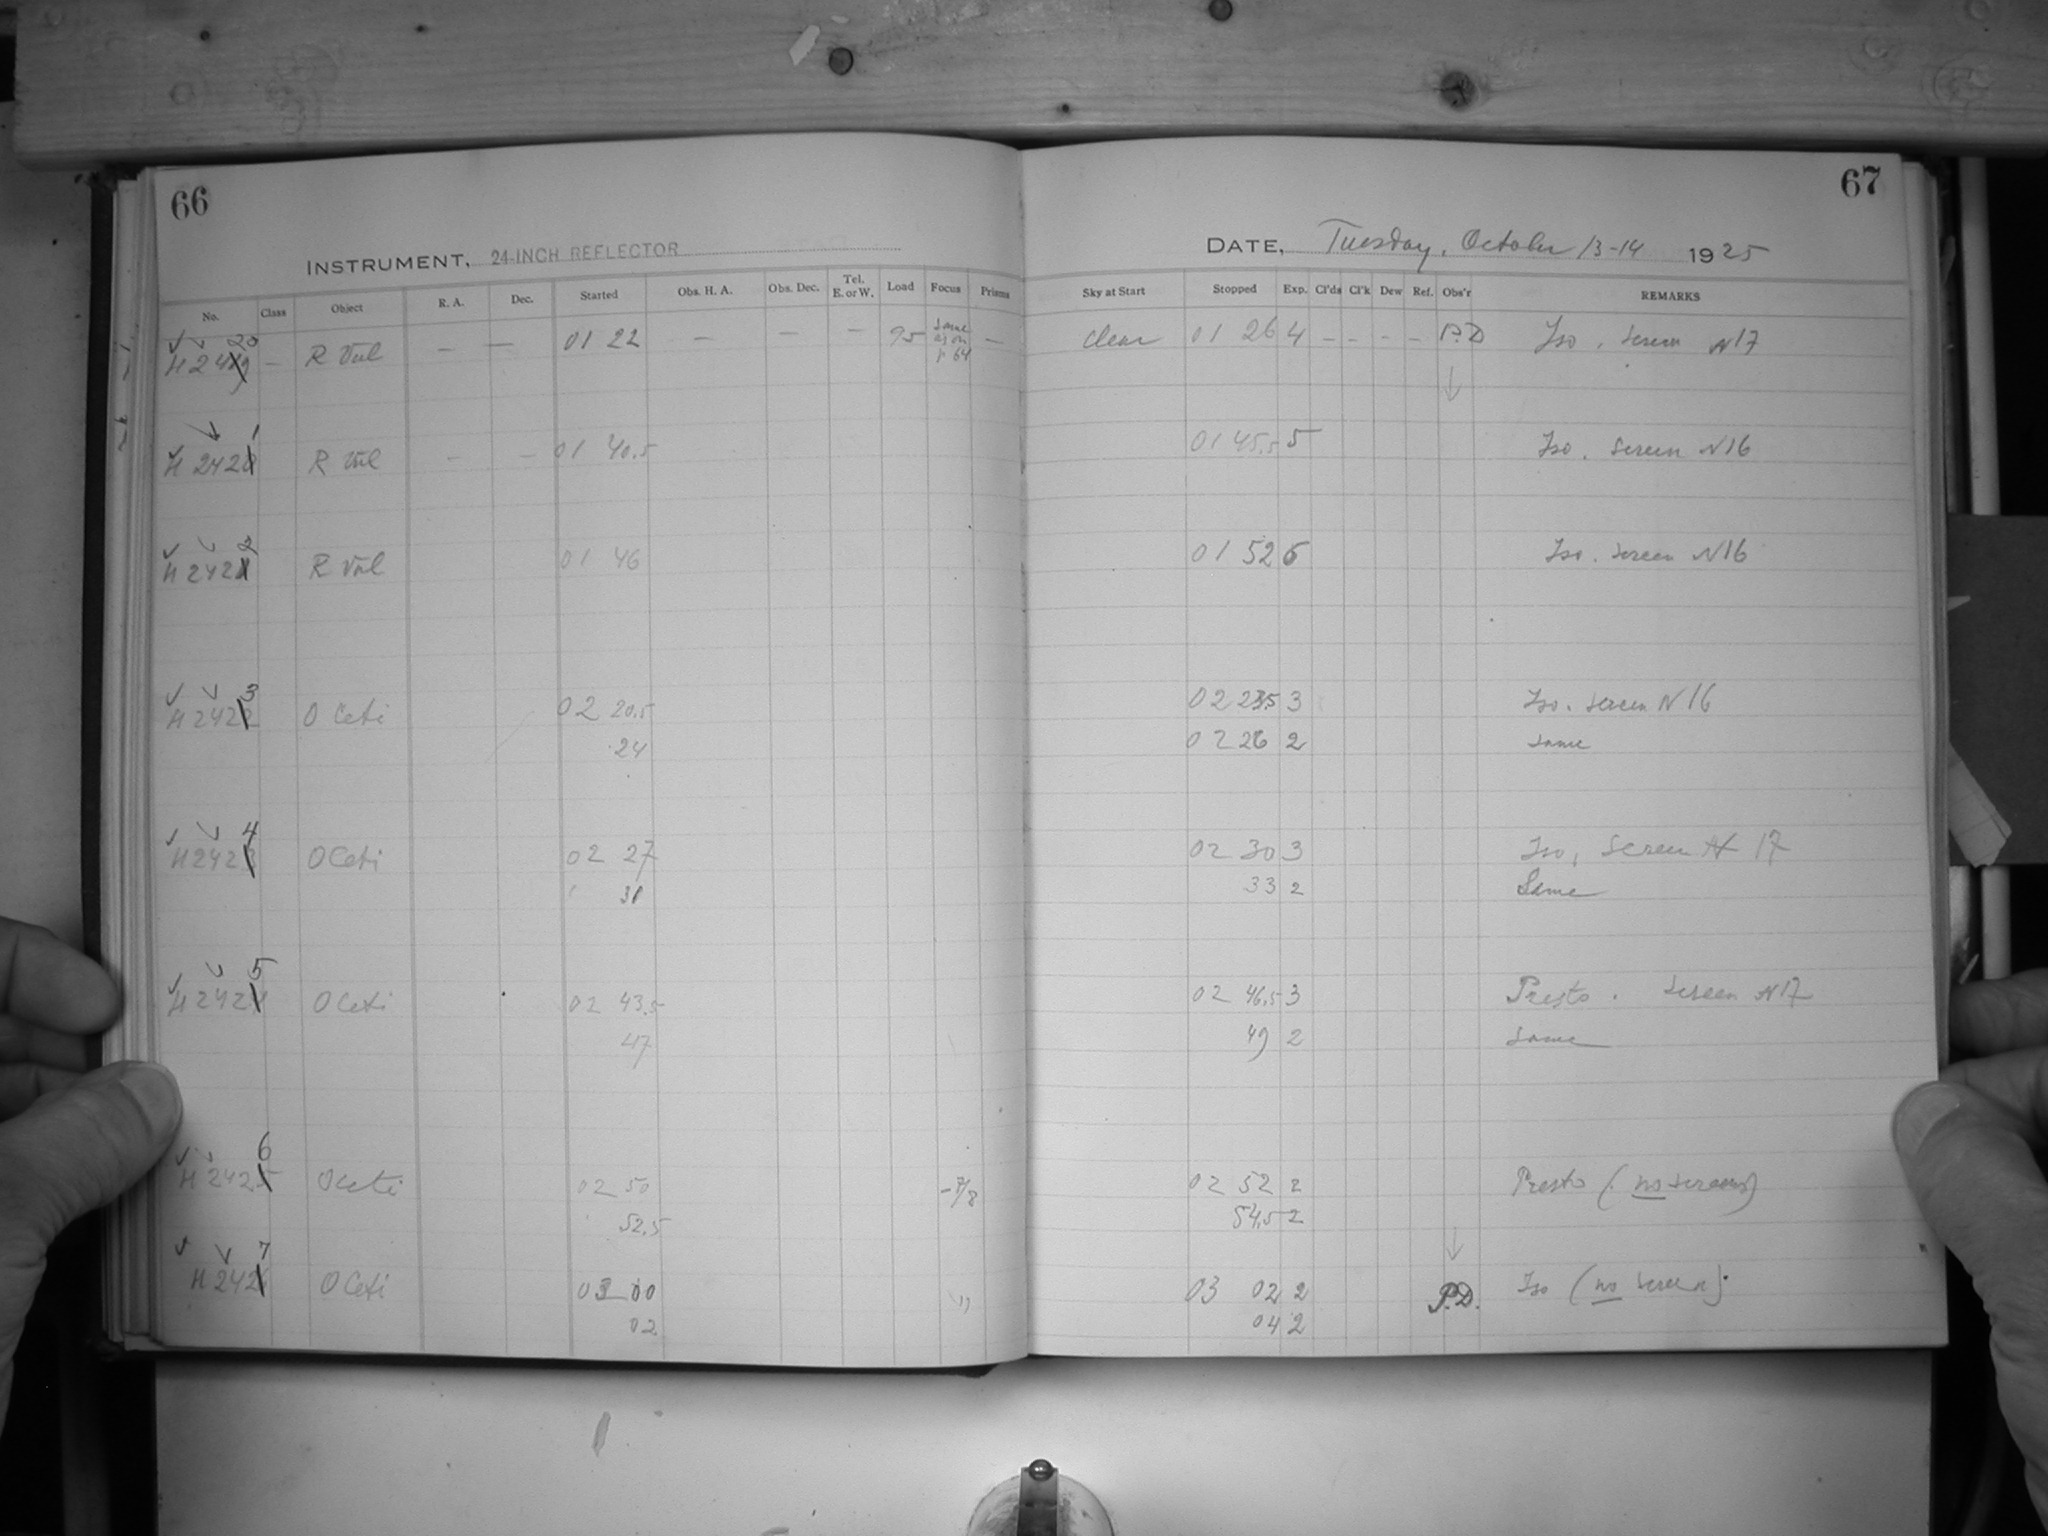 66
INSTRUMENT, 24-INCH REFLECTOR
No. Class Object R. A. Dec. Started Obs. H. A. Obs. Dec. Tel. E. or W. Load Focus Prisms
20
H 2419 — R Vul — — 01 22 — — — 95 same as on p 64 —
1
H 2420 R Vul — — 01 40.5
2
H 2421 R Vul 01 46
3
H 2422 O Ceti 02 20.5
24
4
H 2423 O Ceti 02 27
31
5
H 2424 O Ceti 02 43.5
47
6
H 2425 O Ceti 02 50 -7/8
52.5
7
H 242 O Ceti 03 00 "
02
67
DATE, Tuesday, October 13-14 1925
Sky at Start Stopped Exp. Cl'ds Cl'k Dew Ref. Obs'r REMARKS
Clear 01 26 4 - - - - P.D Iso. Screen N17
01 45.5 5 Iso. Screen N16
01 52 6 Iso. Screen N16
02 23.5 3 Iso. Screen N16
02 26 2 Same
02 30 3 Iso, Screen N 17
33 2 Same
02 46.5 3 Presto. Screen N17
49 2 Same
02 52 2 Presto (no screen)
54.5 2
03 02 2 P.D. Iso (no screen)
04 2